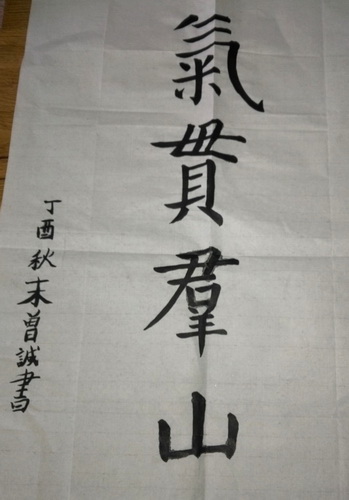 氣貫羣山
丁酉秋末曽誠書